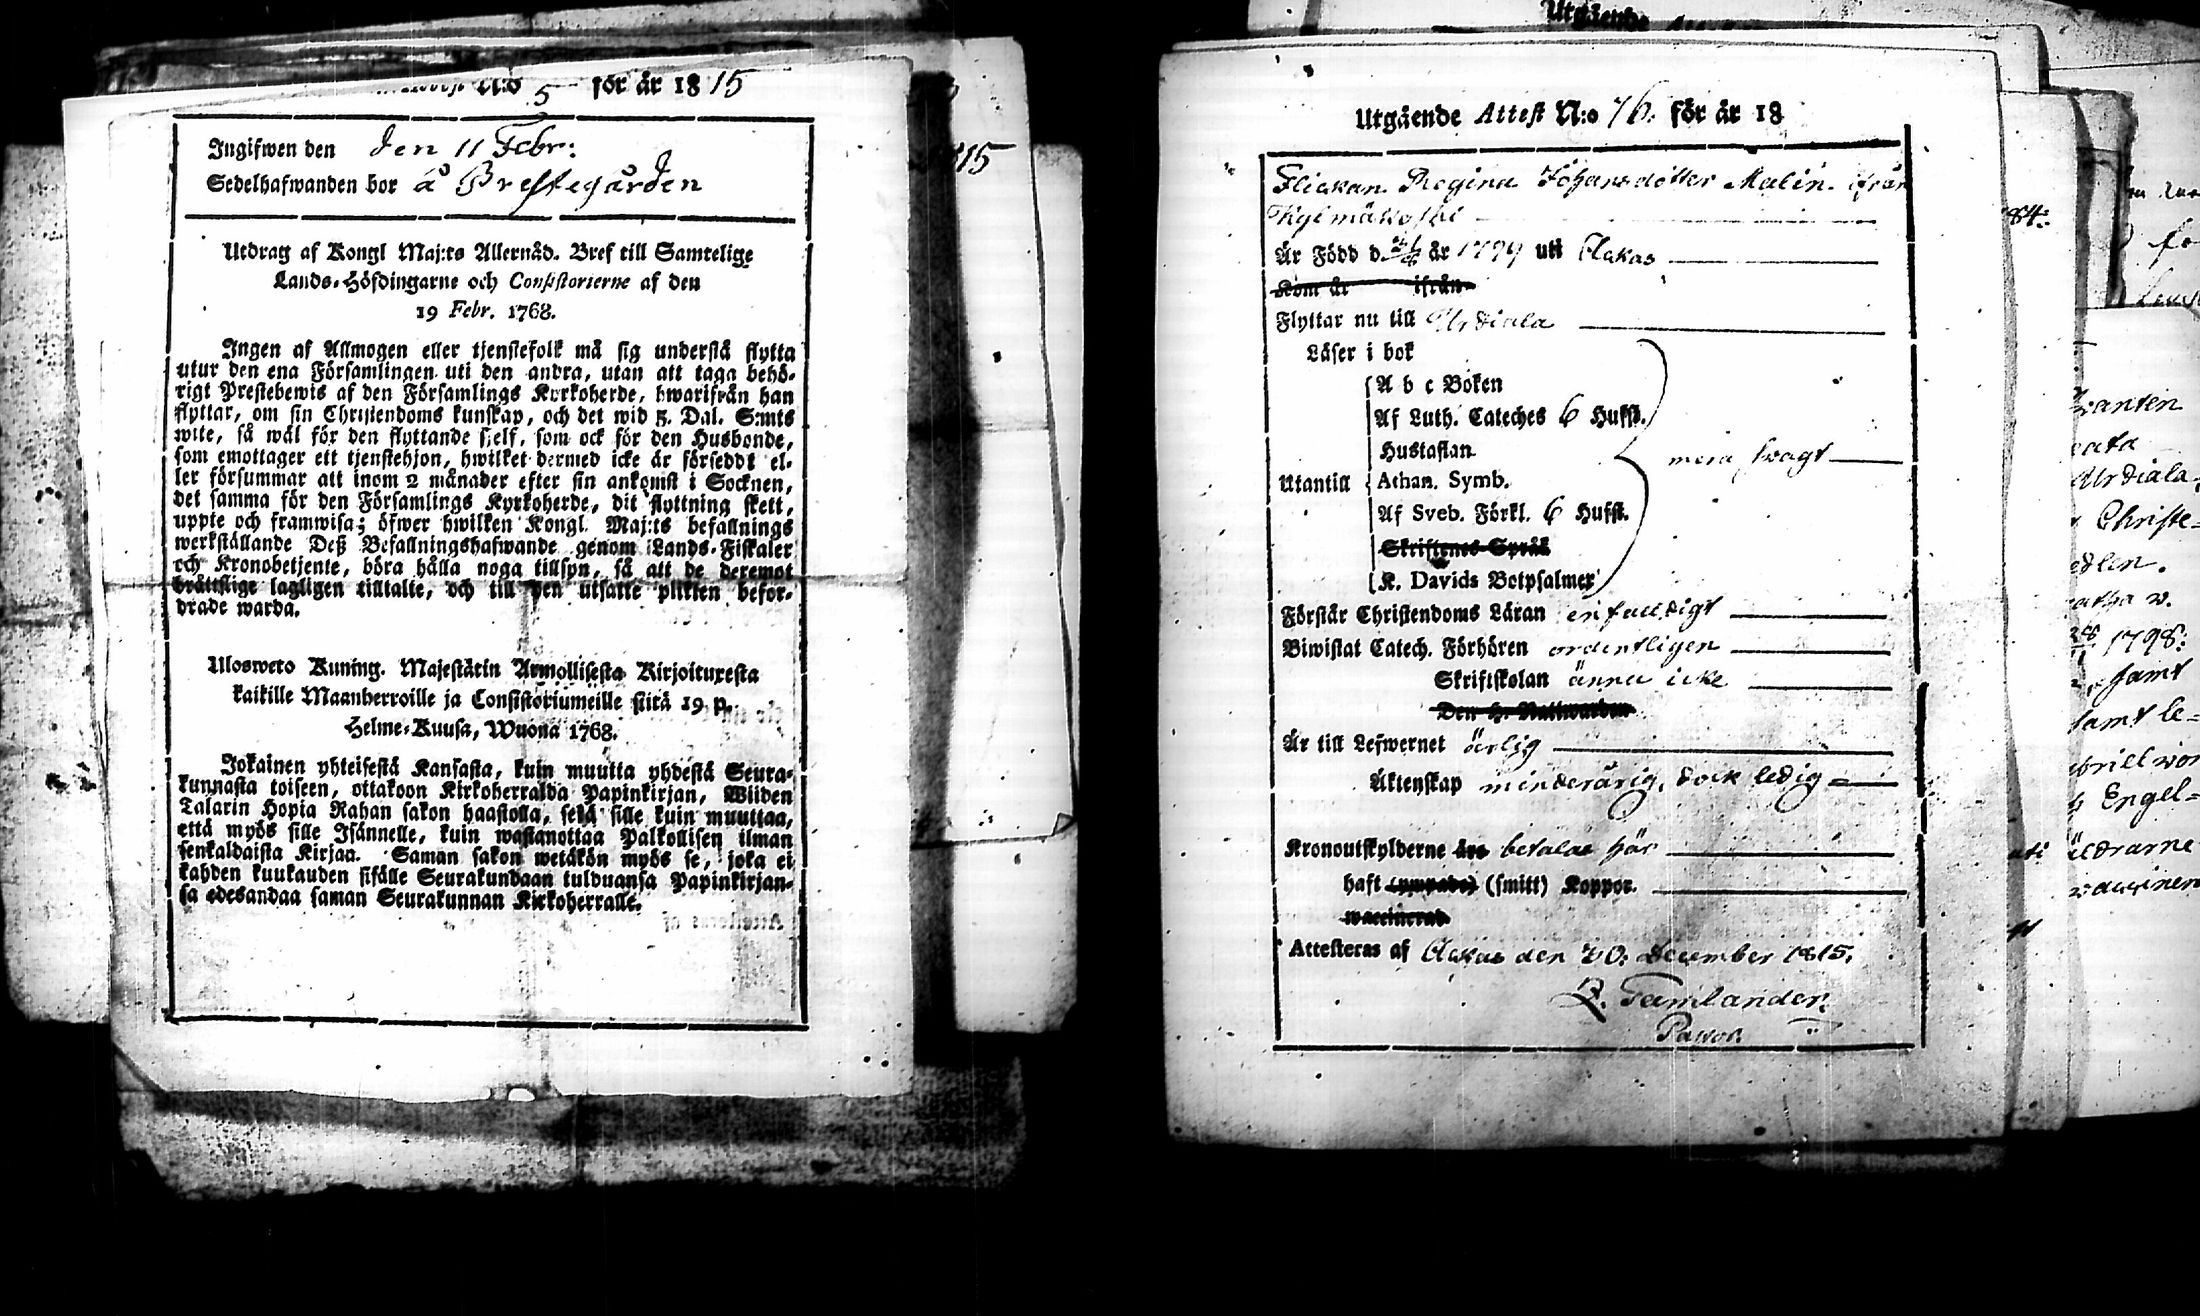 N:o 5 för år 1815
Ingifwen den den 11 Febr:
Sedelhafwanden bor å Prestegården
Utdrag af Kongl Maj:ts Allernåd. Bref till Samtelige
Lands-Höfdingarne och Consistorierne af den
19 Febr. 1768.
Ingen af Allmogen eller tjenstefolk må sig understå flytta
utur den ena Församlingen uti den andra, utan att taga behö-
rigt Prestebewis af den Församlings Kyrkoherde, hwarifrån han
flyttar, om sin Christendoms kunskap, och det wid 5. Dal. S:mts
wite, så wäl för den flyttande sjelf, som ock för den Husbonde,
som emottager ett tjenstehjon, hwilket dermed icke är försedt el-
ler försummar att inom 2 månader efter sin ankomst i Socknen,
det samma för den Församlings Kyrkoherde, dit flyttning skett,
uppte och framwisa; öfwer hwilken Kongl. Maj:ts befallnings
werkställande Deß Befallningshafwande genom Lands-Fiskaler
och Kronobetjente, böra hålla noga tillsyn, så att de deremot
bråttslige lagligen tilltalte, och till den utsatte plikten befor-
drade warda.
Ulosweto Kuning. Majestätin Armollisesta Kirjoituxesta
kaikille Maanherroille ja Consistoriumeille siitä 19 p.
Helme-Kuusa, Wuona 1768.
Jokainen yhteisestä Kansasta, kuin muutta yhdestä Seura-
kunnasta toiseen, ottakoon Kirkoherralda Papinkirjan, Wiiden
Talarin Hopia Rahan sakon haastolla, sekä sille kuin muuttaa,
että myös sille Isännelle, kuin wastanottaa Palkollisen ilman
senkaldaista Kirjaa. Saman sakon wetäkön myös se, joka ei
kahden kuukauden sisälle Seurakundaan tulduansa Papinkirjan-
sa edesandaa saman Seurakunnan Kirkoherralle.
15
Utgående Attest N:o 76. för år 18
Flickan Regina Johansdotter Malin ifrån
Kylmäkoski
Är Född d. år 1799 uti Ackas
Kom år ifrån
Flyttar nu till Urdiala
Läser i bok
A b c Boken
Af Luth. Cateches 6 Hufst.
Hustaflan
mera swagt
Utantill Athan. Symb.
Af Sveb. Förkl. 6 Hufst.
Skriftenes Språk
K. Davids Botpsalmer
Förstår Christendoms Läran enfaldigt
Biwistat Catech. Förhören ordentligen
Skriftskolan ännu icke
Den H. Nattwarden
Är till Lefwernet ärlig
Äktenskap minderårig, dock ledig
Kronoutskylderne äro betalas här
haft (ympade) (smitt) Koppor.
waccinerad
Attesteras af Ackas den 20: December 1815.
Tamlander
Pastor.
84:
Urdiala
Christe-
1798:
samt
samt le-
Engel-